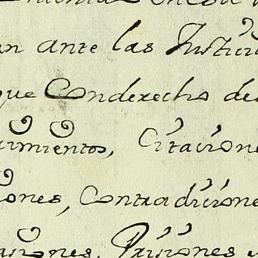 an ante las Justicia
que Conderecho de
cimientos, Citacione
iones, Contradicione
asiones, Prisiones y